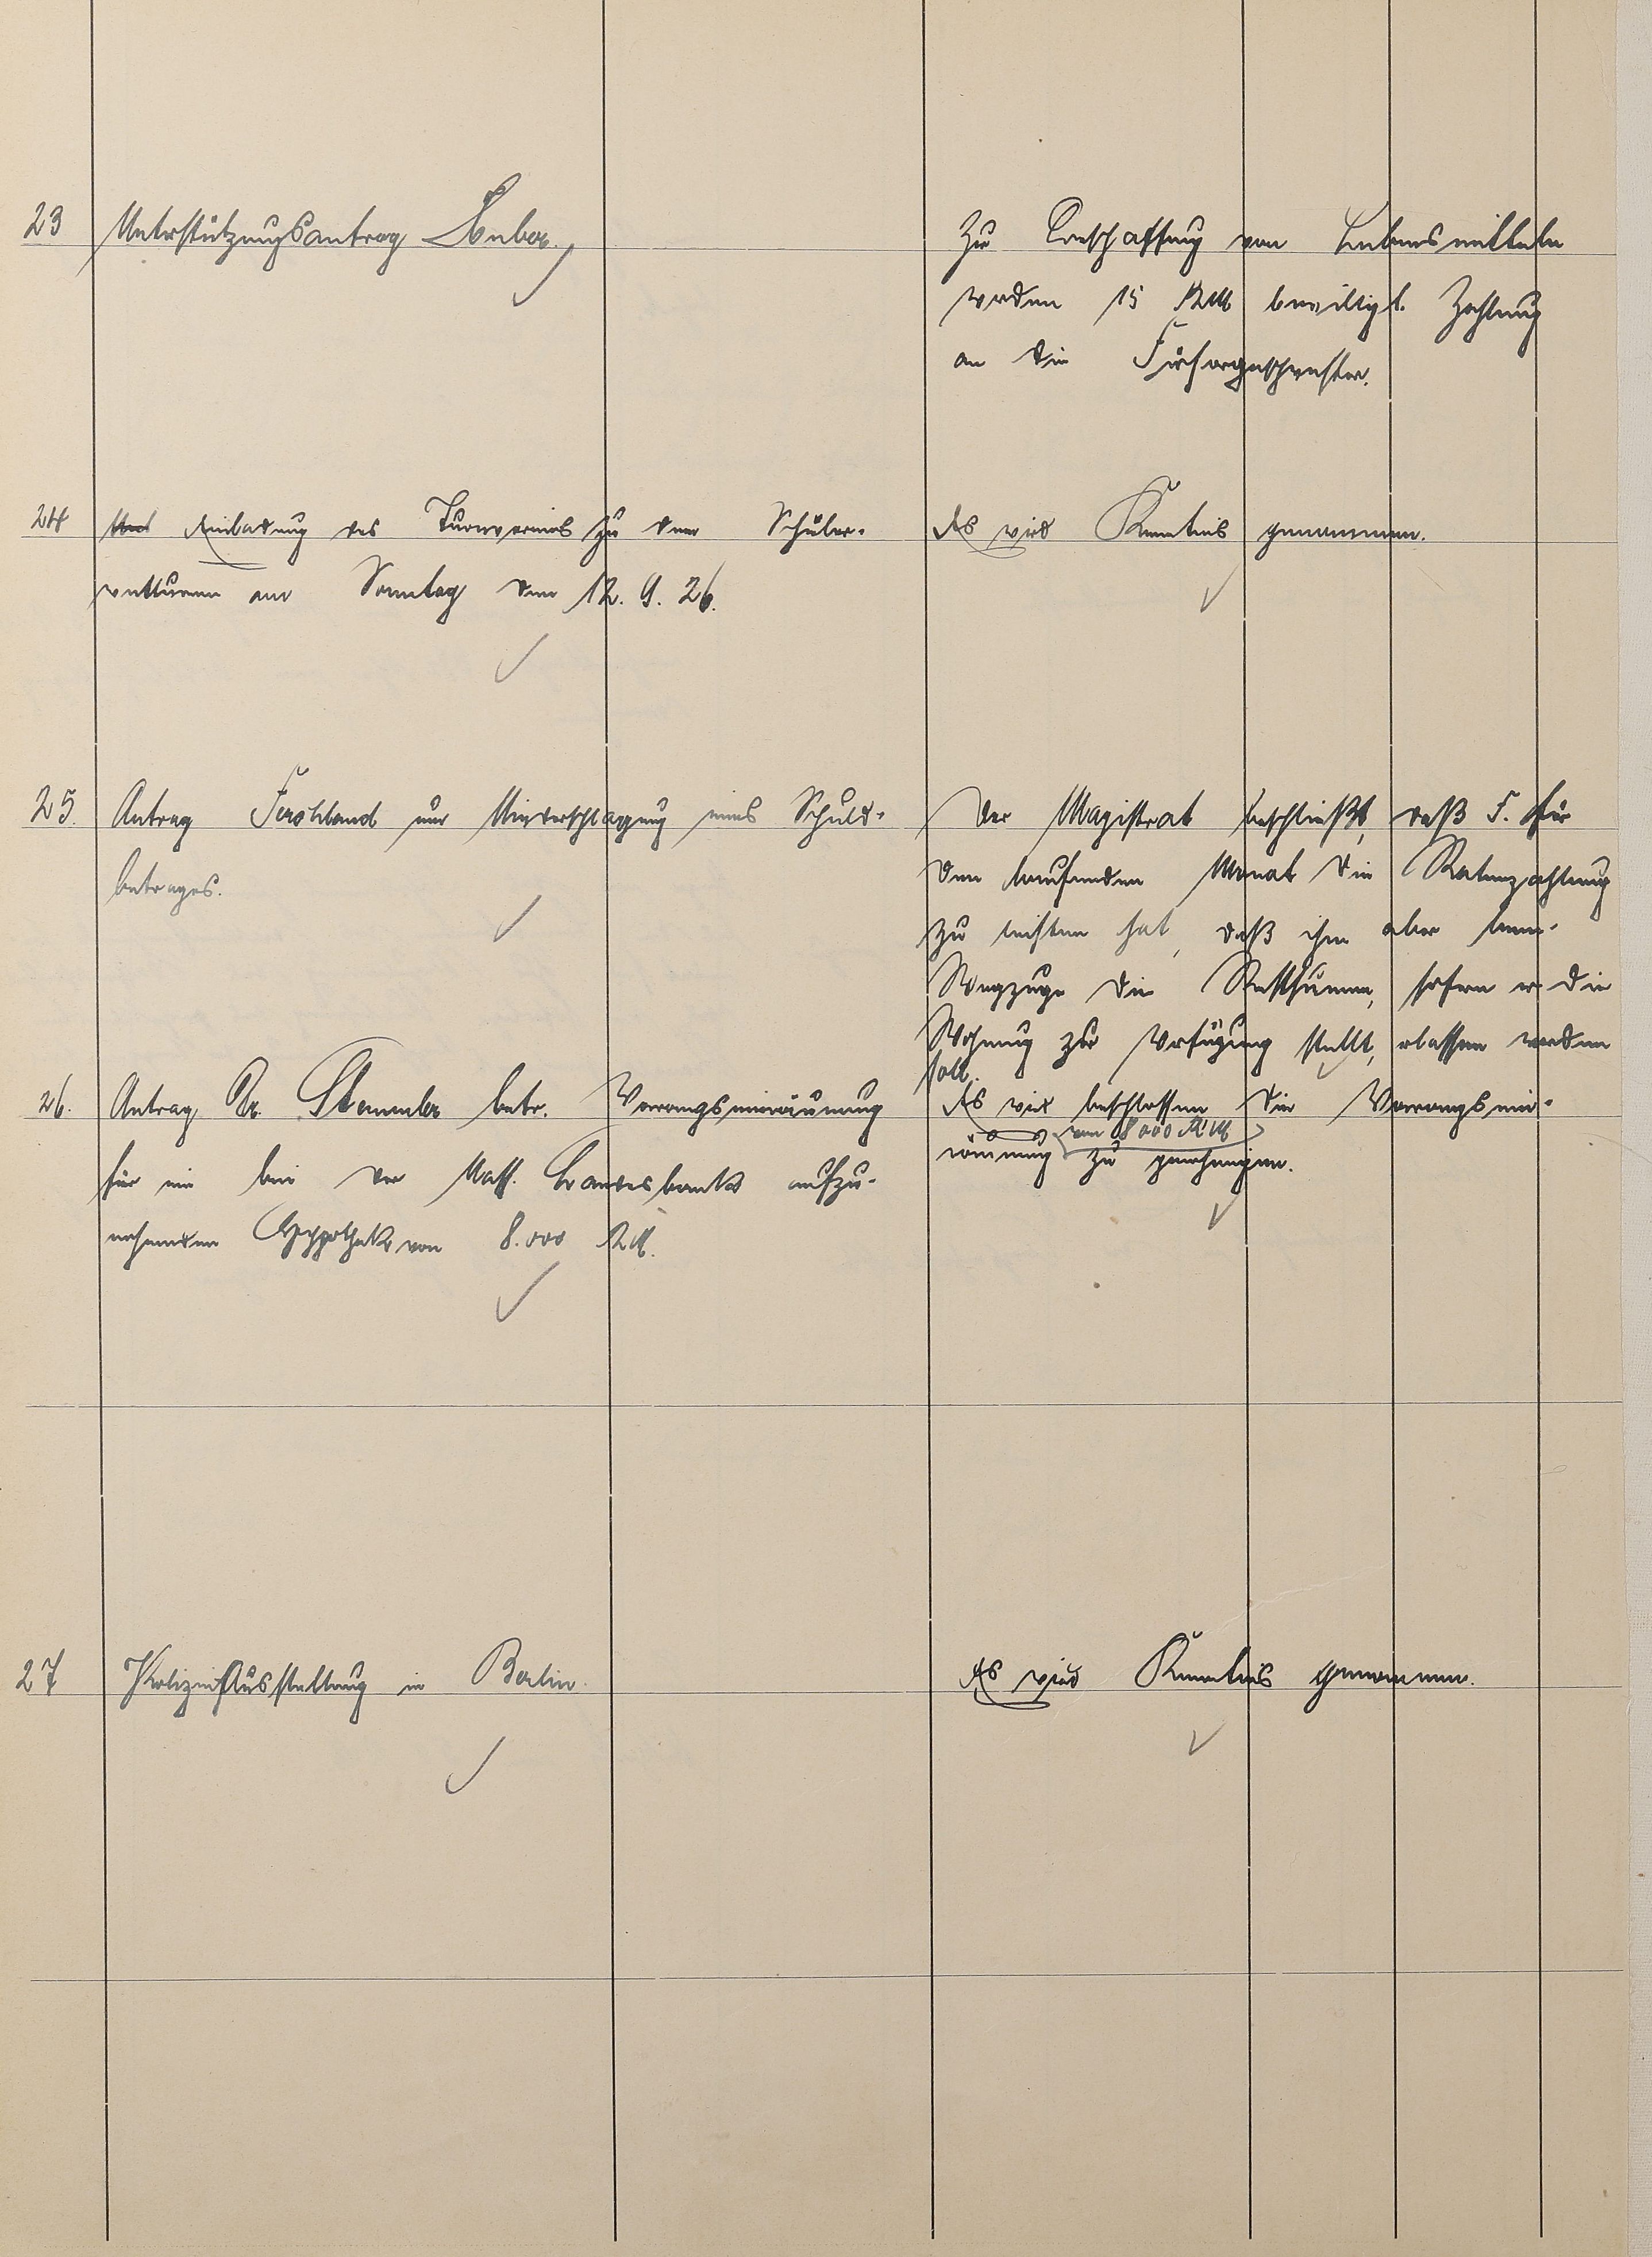 23 Unterstützungsantrag
Zur Beschaffung von Lebensmitteln
werden 15 RM bewilligt. Zahlung
an die Fürsorgeschwester.
24 Einladung des Turnvereins zu dem Schüler-
wetturnen am Sonntag den 12. 9. 26.
Es wird Kenntnis genommen.
25. Antrag um Niederschlagung eines Schuld-
betrages.
Der Magistrat beschließt, daß F. für
den laufenden Monat die Ratenzahlung
zu leisten hat, daß ihm aber beim
Wegzuge die Restsumme, sofern er die
Wohnung zur Verfügung stellt, erlassen werden
soll.
26. Antrag Dr. Stemmler betr. Vorrangseinräumung
für eine bei der Nass. Landesbank aufzu-
nehmenden Hypothek von 8.000 RM.
Es wird beschlossen die Vorrangsein-
von 8000 RM
räumung zu genehmigen.
27 Polizei Ausstellung in Berlin.
Es wird Kenntnis genommen.